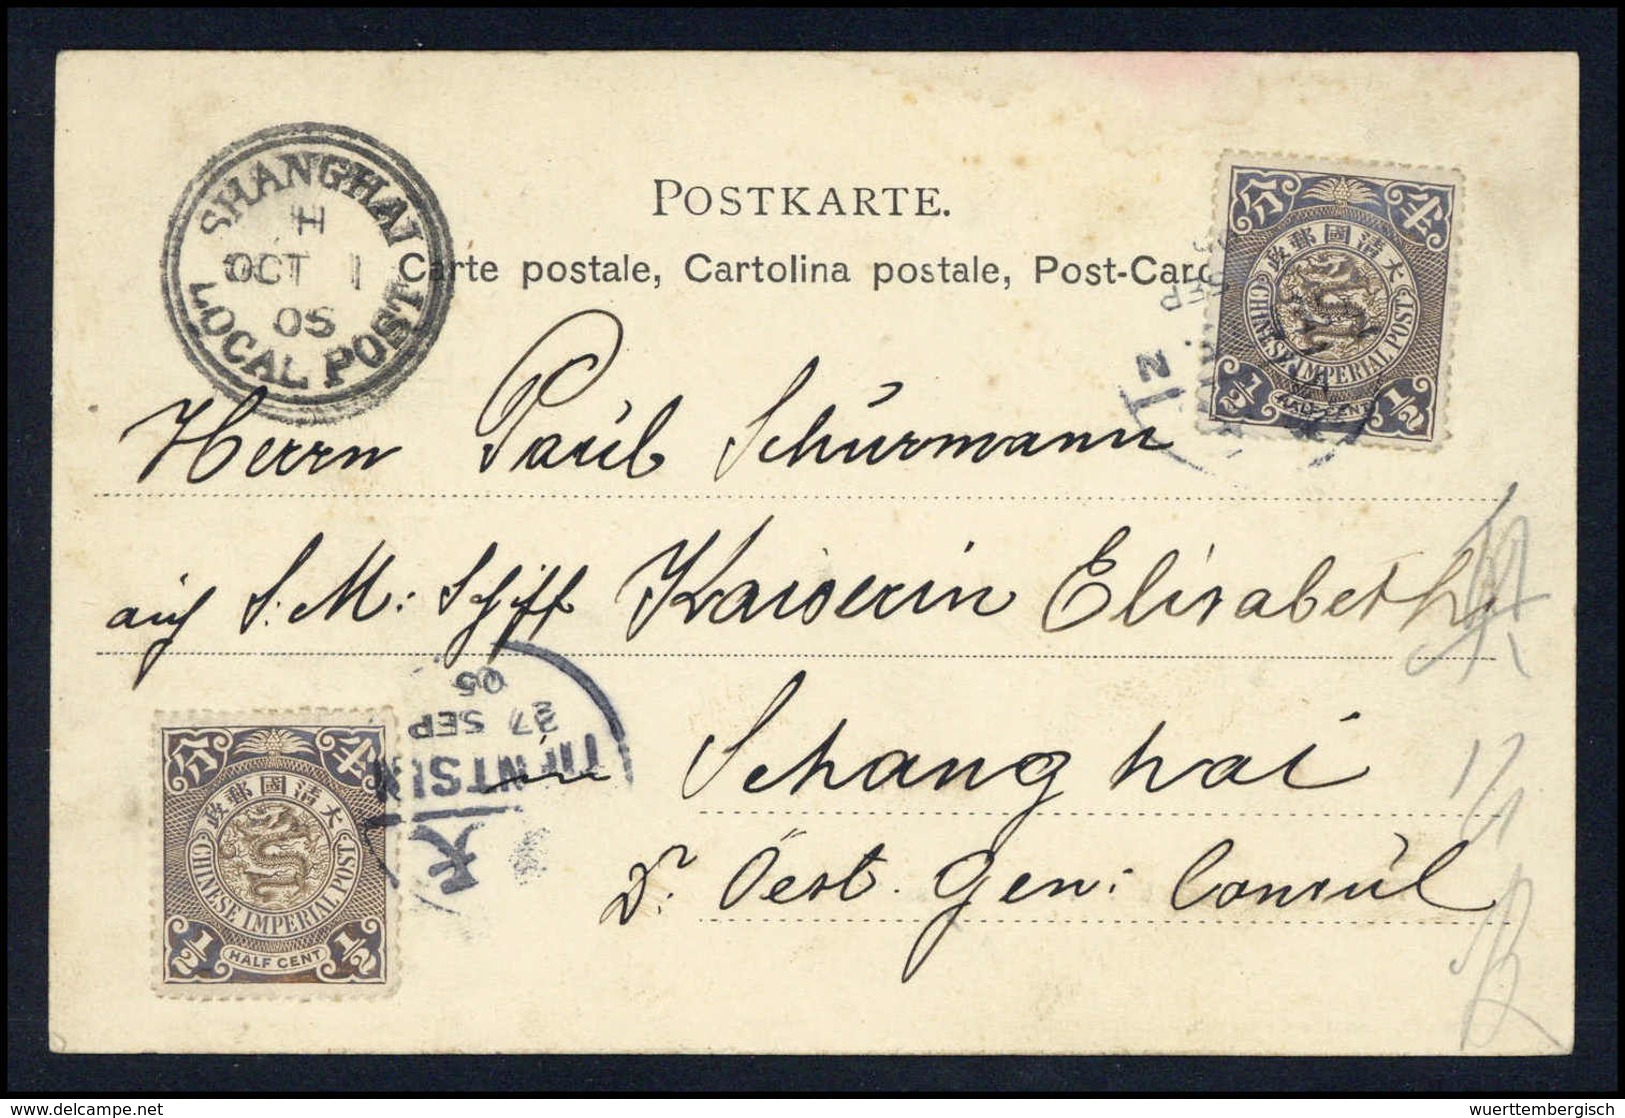 POSTKARTE.
Carte postale, Cartolina postale, Post-Car
SHANGHAI
H
OCT 1
05
LOCAL POST
Herrn Paul Schürmann
auf S. M: Schiff Kaiserin Elisabeth
in Schanghai
Dr. Öest. Gen: Consul
大清國郵政
CHINESE IMPERIAL POST
1/2 HALF CENT 1/2
SEP
大清國郵政
CHINESE IMPERIAL POST
1/2 HALF CENT 1/2
TIENTSIN
27 SEP
05
delcampe.net
wuerttembergisch